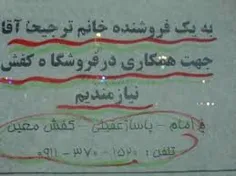 به یک فروشنده خانم ترجیحا آقا
جهت همکاری در فروشگاه کفش
نیازمندیم
امام - پاساژ عقیلی - کفش معین
تلفن: ۱۵۲۰ - ۳۷۰ - ۰۹۱۱